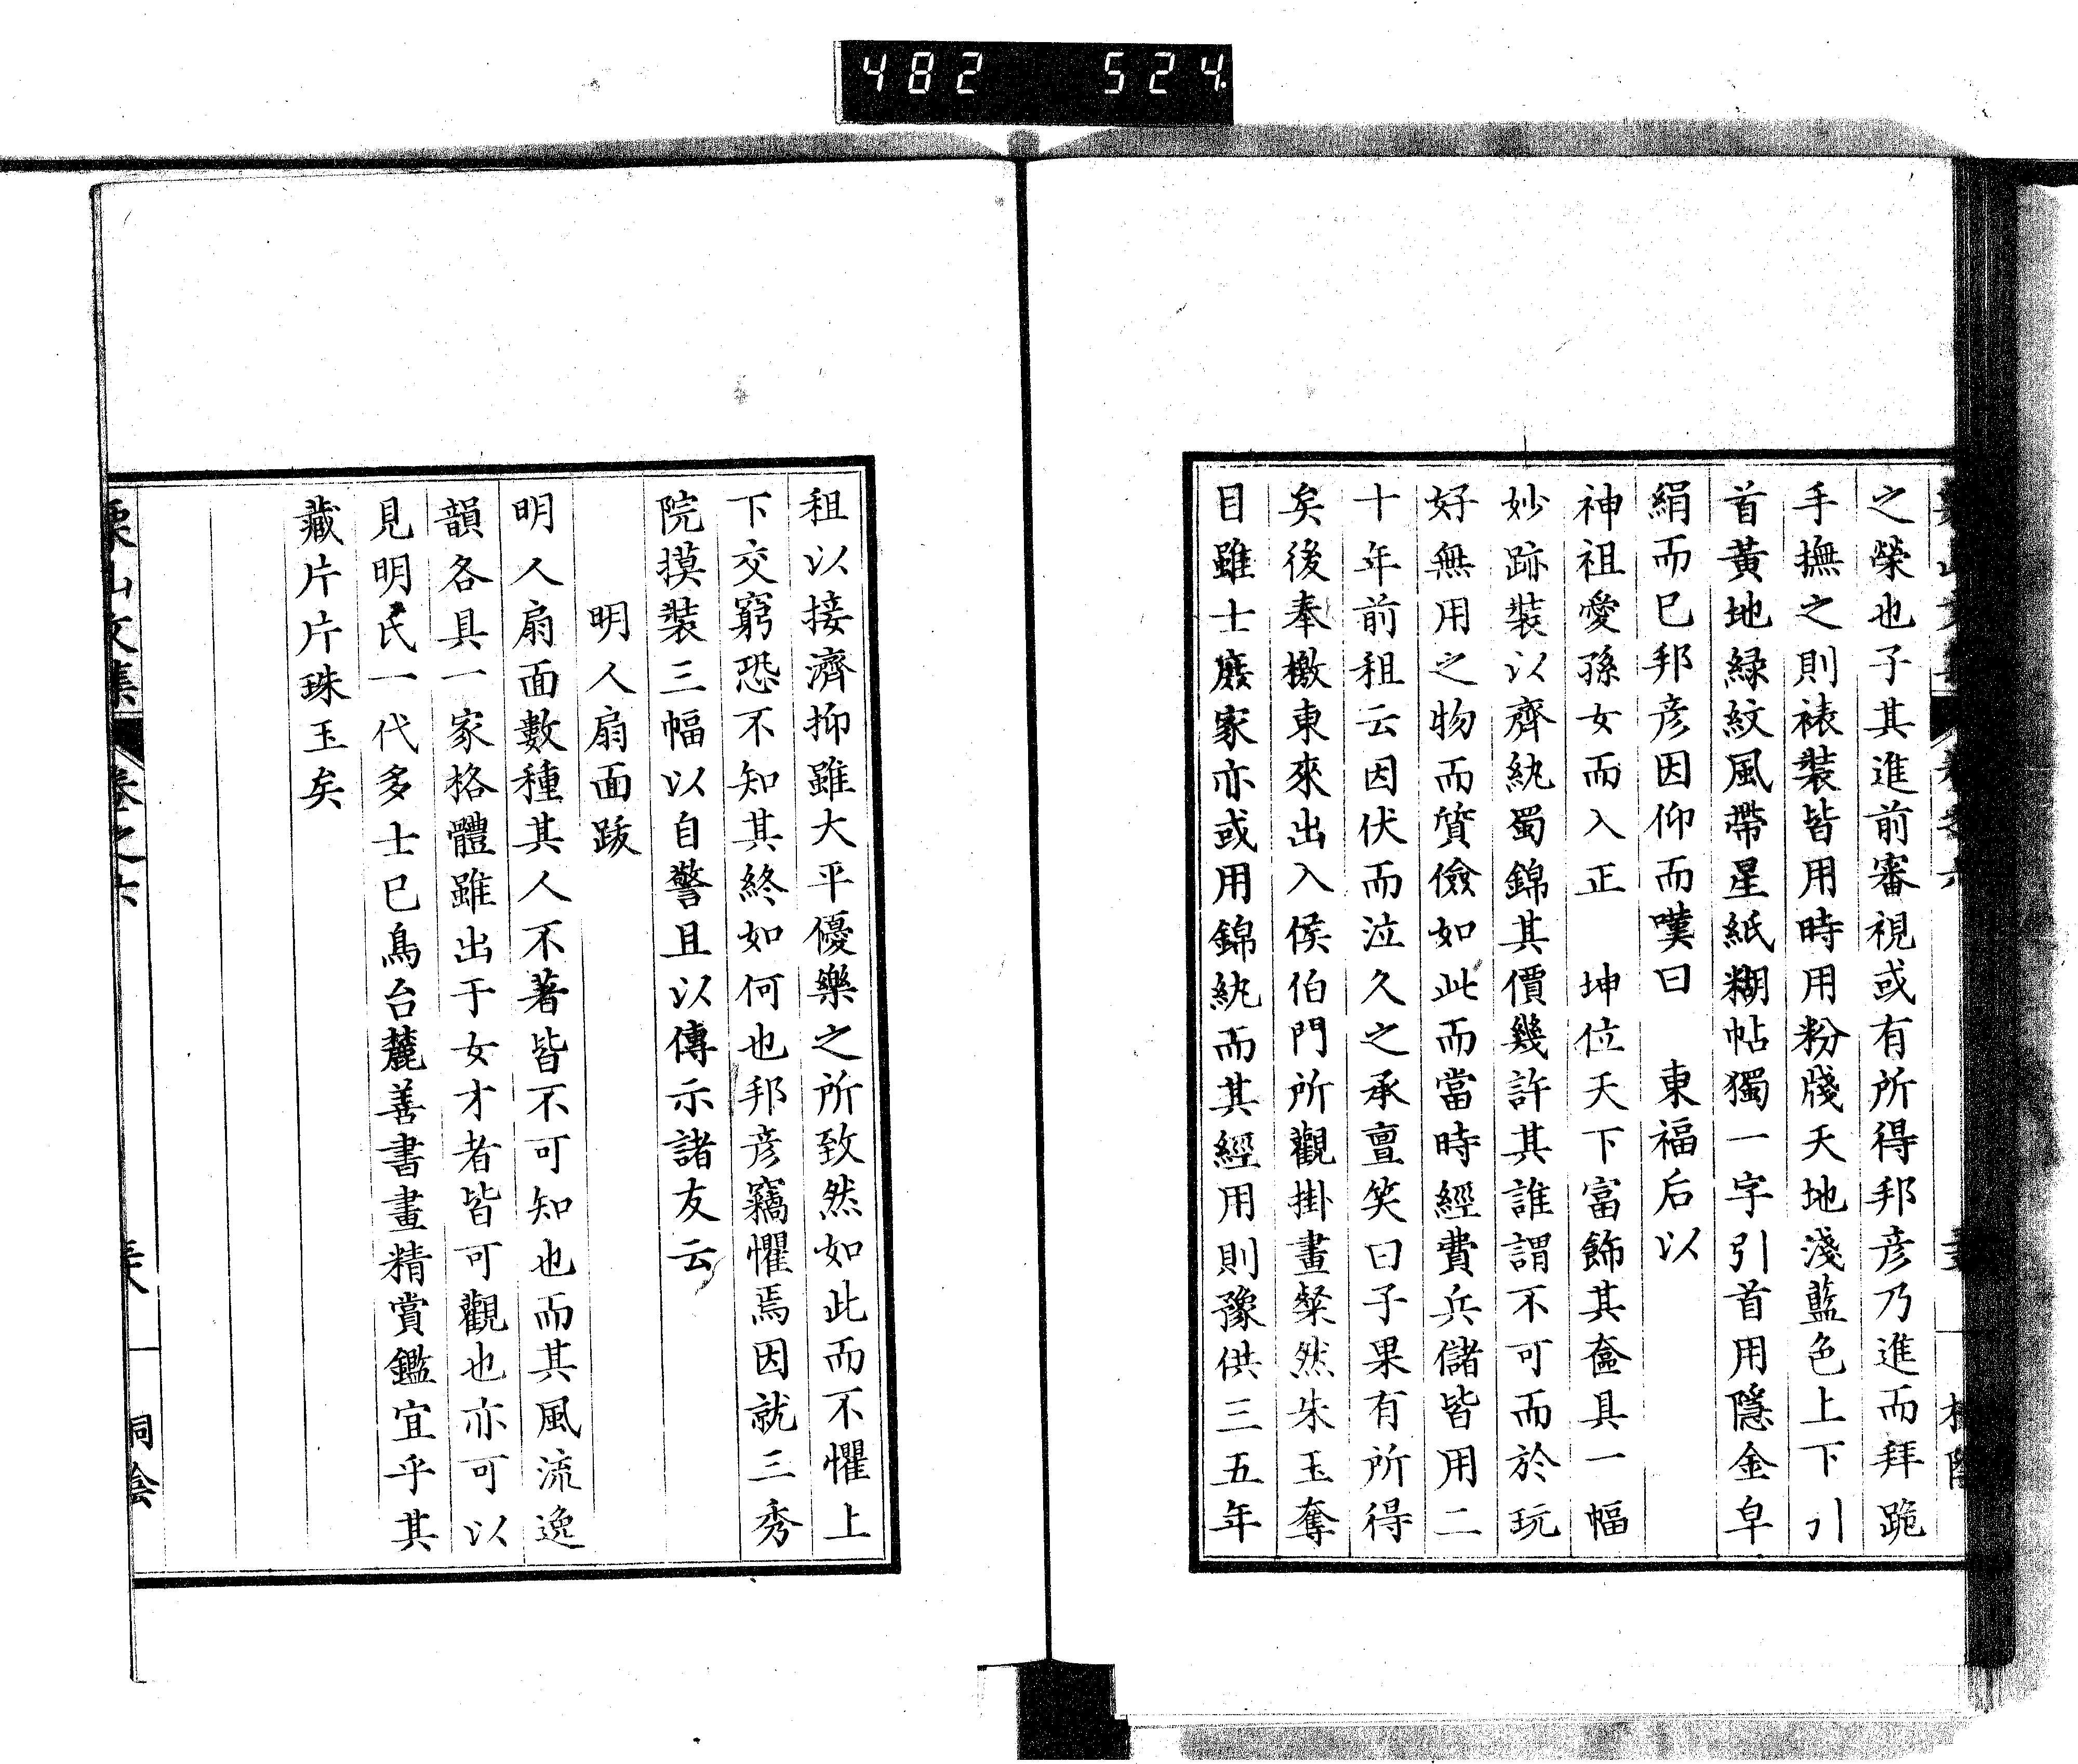 482 524
之榮也子其進前審視或有所得邦彦乃進而拜跪
手撫之則裱裝皆用時用粉牋天地淺藍色上下引
首黃地緑紋風帶星紙糊帖獨一字引首用隱金皁
絹而已邦彦因仰而嘆曰　東福后以
神祖愛孫女而入正　坤位天下富飾其奩具一幅
妙跡裝以齊紈蜀錦其價幾許其誰謂不可而於玩
好無用之物而質儉如此而當時經費兵儲皆用二
十年前租云因伏而泣久之承亶笑曰子果有所得
矣後奉檄東來出入侯伯門所觀掛畫粲然朱玉奪
目雖士庶家亦或用錦紈而其經用則豫供三五年
租以接濟抑雖大平優樂之所致然如此而不懼上
下交窮恐不知其終如何也邦彦竊懼焉因就三秀
院摸裝三幅以自警且以傳示諸友云
明人扇面跋
明人扇面數種其人不著皆不可知也而其風流逸
韻各具一家格體雖出于女才者皆可觀也亦可以
見明氏一代多士已鳥台麓善書畫精賞鑑宜乎其
藏片片珠玉矣
栗山文集 卷之六